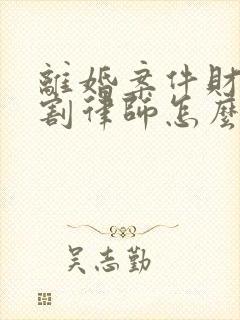 離婚案件財
割律師怎麼
吳志勤